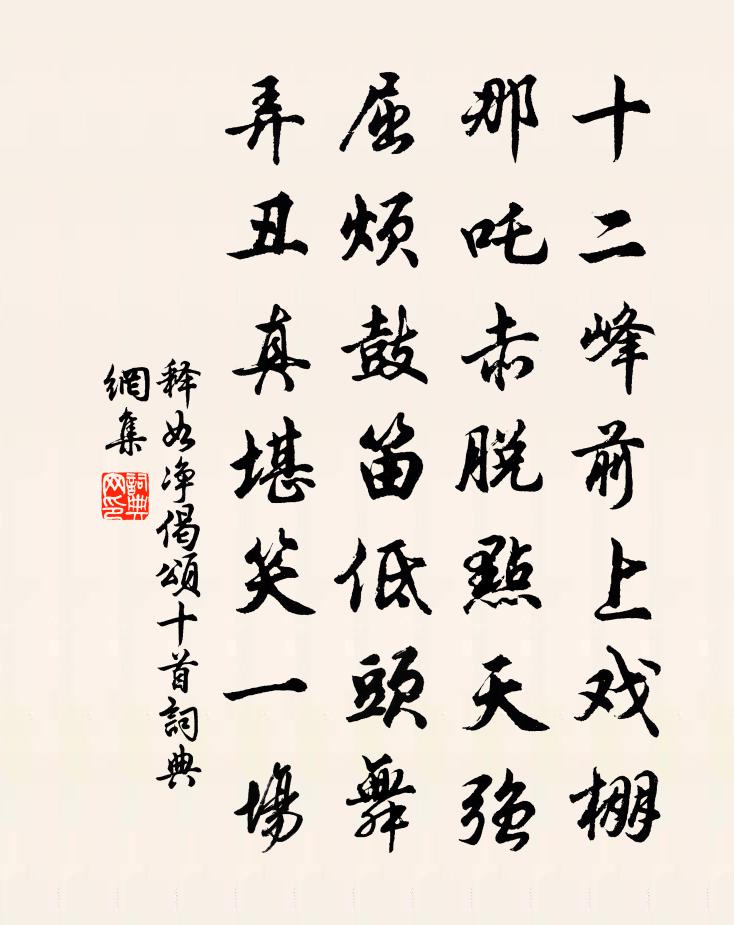 十二峰前上戏棚
那吒赤脱點天強
屈烦鼓笛低頭舞
弄丑真堪笑一場
释如净偈颂十首詞典
網集
詞典
网印